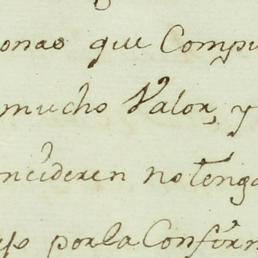 onas que Compu
mucho Valor, y
ncideren no tenga
por la Confirm